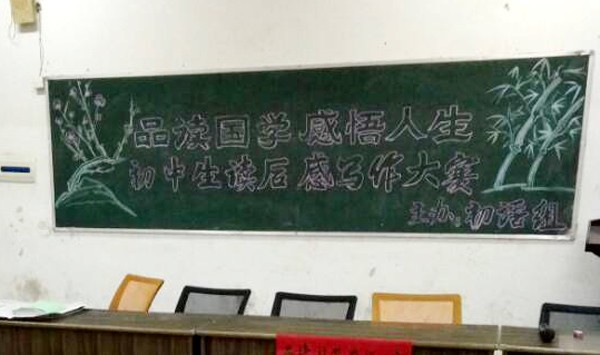 品读国学 感悟人生
初中生读后感写作大赛
主办:初语组